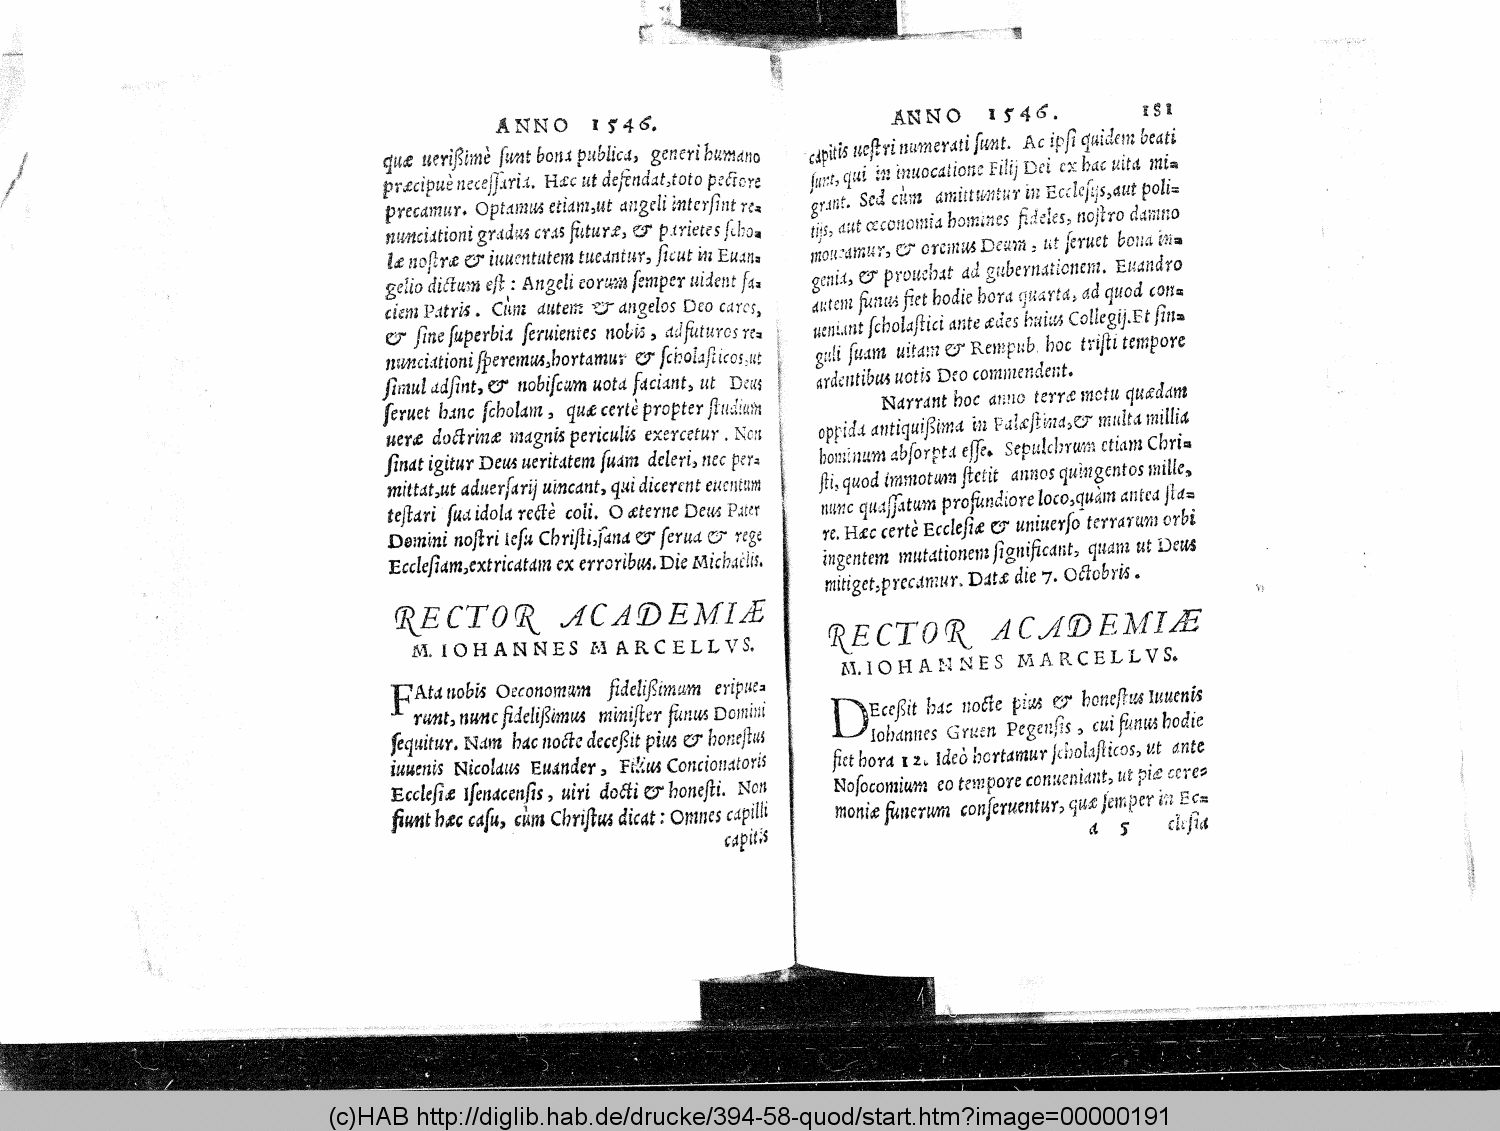 ANNO 1546.
quæ uerißimè ſunt bona publica, generi humano
præcipuè neceſſaria. Hæc ut defendat,toto pectore
precamur. Optamus etiam,ut angeli interſint re=
nunciationi gradus cras futuræ, & parietes ſcho=
læ noſtræ & iuuentutem tueantur, ſicut in Euan=
gelio dictum eſt : Angeli eorum ſemper uident fa=
ciem Patris. Cùm autem & angelos Deo caros,
& ſine ſuperbia ſeruientes nobis, adfuturos re=
nunciationi ſperemus,hortamur & ſcholaſticos,ut
ſimul adſint, & nobiſcum uota faciant, ut Deus
ſeruet hanc ſcholam, quæ certè propter ſtudium
ueræ doctrinæ magnis periculis exercetur. Non
ſinat igitur Deus ueritatem ſuam deleri, nec per=
mittat,ut aduerſarij uincant, qui dicerent euentum
teſtari ſua idola rectè coli. O æterne Deus Pater
Domini noſtri Ieſu Chriſti,ſana & ſerua & rege
Eccleſiam,extricatam ex erroribus. Die Michaëlis.
RECTOR ACADEMIÆ
M. IOHANNES MARCELLVS.
FAta nobis Oeconomum fidelißimum eripue=
runt, nunc fidelißimus miniſter funus Domini
ſequitur. Nam hac nocte deceßit pius & honeſtus
iuuenis Nicolaus Euander, Filius Concionatoris
Eccleſiæ Iſenacenſis, uiri docti & honeſti. Non
fiunt hæc caſu, cùm Chriſtus dicat : Omnes capilli
capitis
ANNO 1546. 181
capitis ueſtri numerati ſunt. Ac ipſi quidem beati
ſunt, qui in inuocatione Filij Dei ex hac uita mi=
grant. Sed cùm amittuntur in Eccleſijs,aut poli=
tijs, aut œconomia homines fideles, noſtro damno
moueamur, & oremus Deum, ut ſeruet bona in=
genia, & prouehat ad gubernationem. Euandro
autem funus fiet hodie hora quarta, ad quod con=
ueniant ſcholaſtici ante ædes huius Collegij.Et ſin=
guli ſuam uitam & Rempub. hoc triſti tempore
ardentibus uotis Deo commendent.
Narrant hoc anno terræ motu quædam
oppida antiquißima in Palæſtina,& multa millia
hominum abſorpta eſſe. Sepulchrum etiam Chri=
ſti, quod immotum ſtetit annos quingentos mille,
nunc quaſſatum profundiore loco,quàm antea ſta=
re. Hæc certè Eccleſiæ & uniuerſo terrarum orbi
ingentem mutationem ſignificant, quam ut Deus
mitiget,precamur. Datæ die 7. Octobris.
RECTOR ACADEMIÆ
M. IOHANNES MARCELLVS.
DEceßit hac nocte pius & honeſtus Iuuenis
Iohannes Gruen Pegenſis, cui funus hodie
fiet hora 12. Ideò hortamur ſcholaſticos, ut ante
Noſocomium eo tempore conueniant, ut piæ cere=
moniæ funerum conſeruentur, quæ ſemper in Ec=
a 5 cleſia
(c)HAB http://diglib.hab.de/drucke/394-58-quod/start.htm?image=00000191